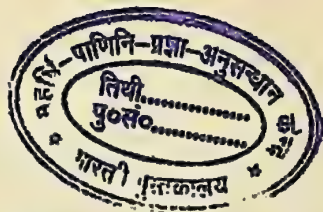 महर्षि-पाणिनि-प्रज्ञा-अनुसन्धान
तिथी...............
पु०सं०...............
भारती पुस्तकालय